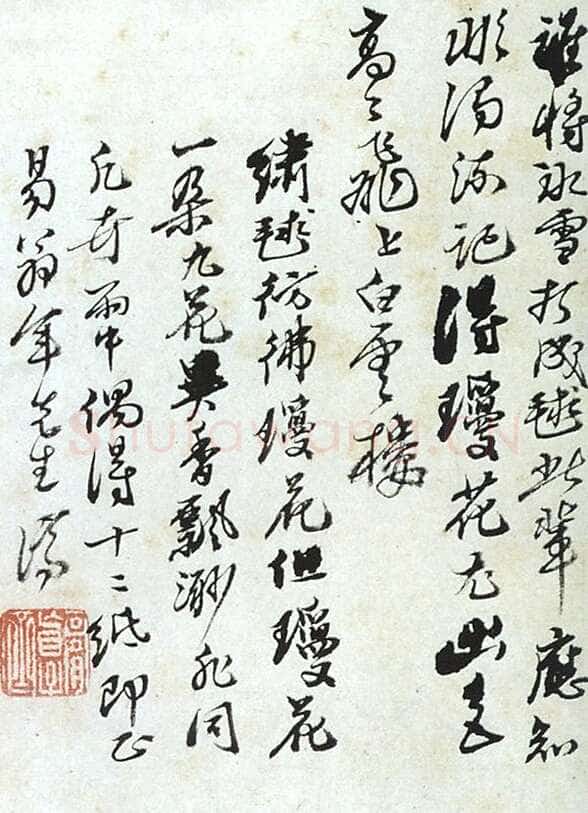 誰將冰雪打成毬此輩應知
濁流記得瓊花尤出色
高高飛上白雲樓
繡毬彷彿瓊花但瓊花
一朵九花異香飄渺非同
凡奇雨中偶得十二紙即正
易翁年先生 濟
Shufawang.CN